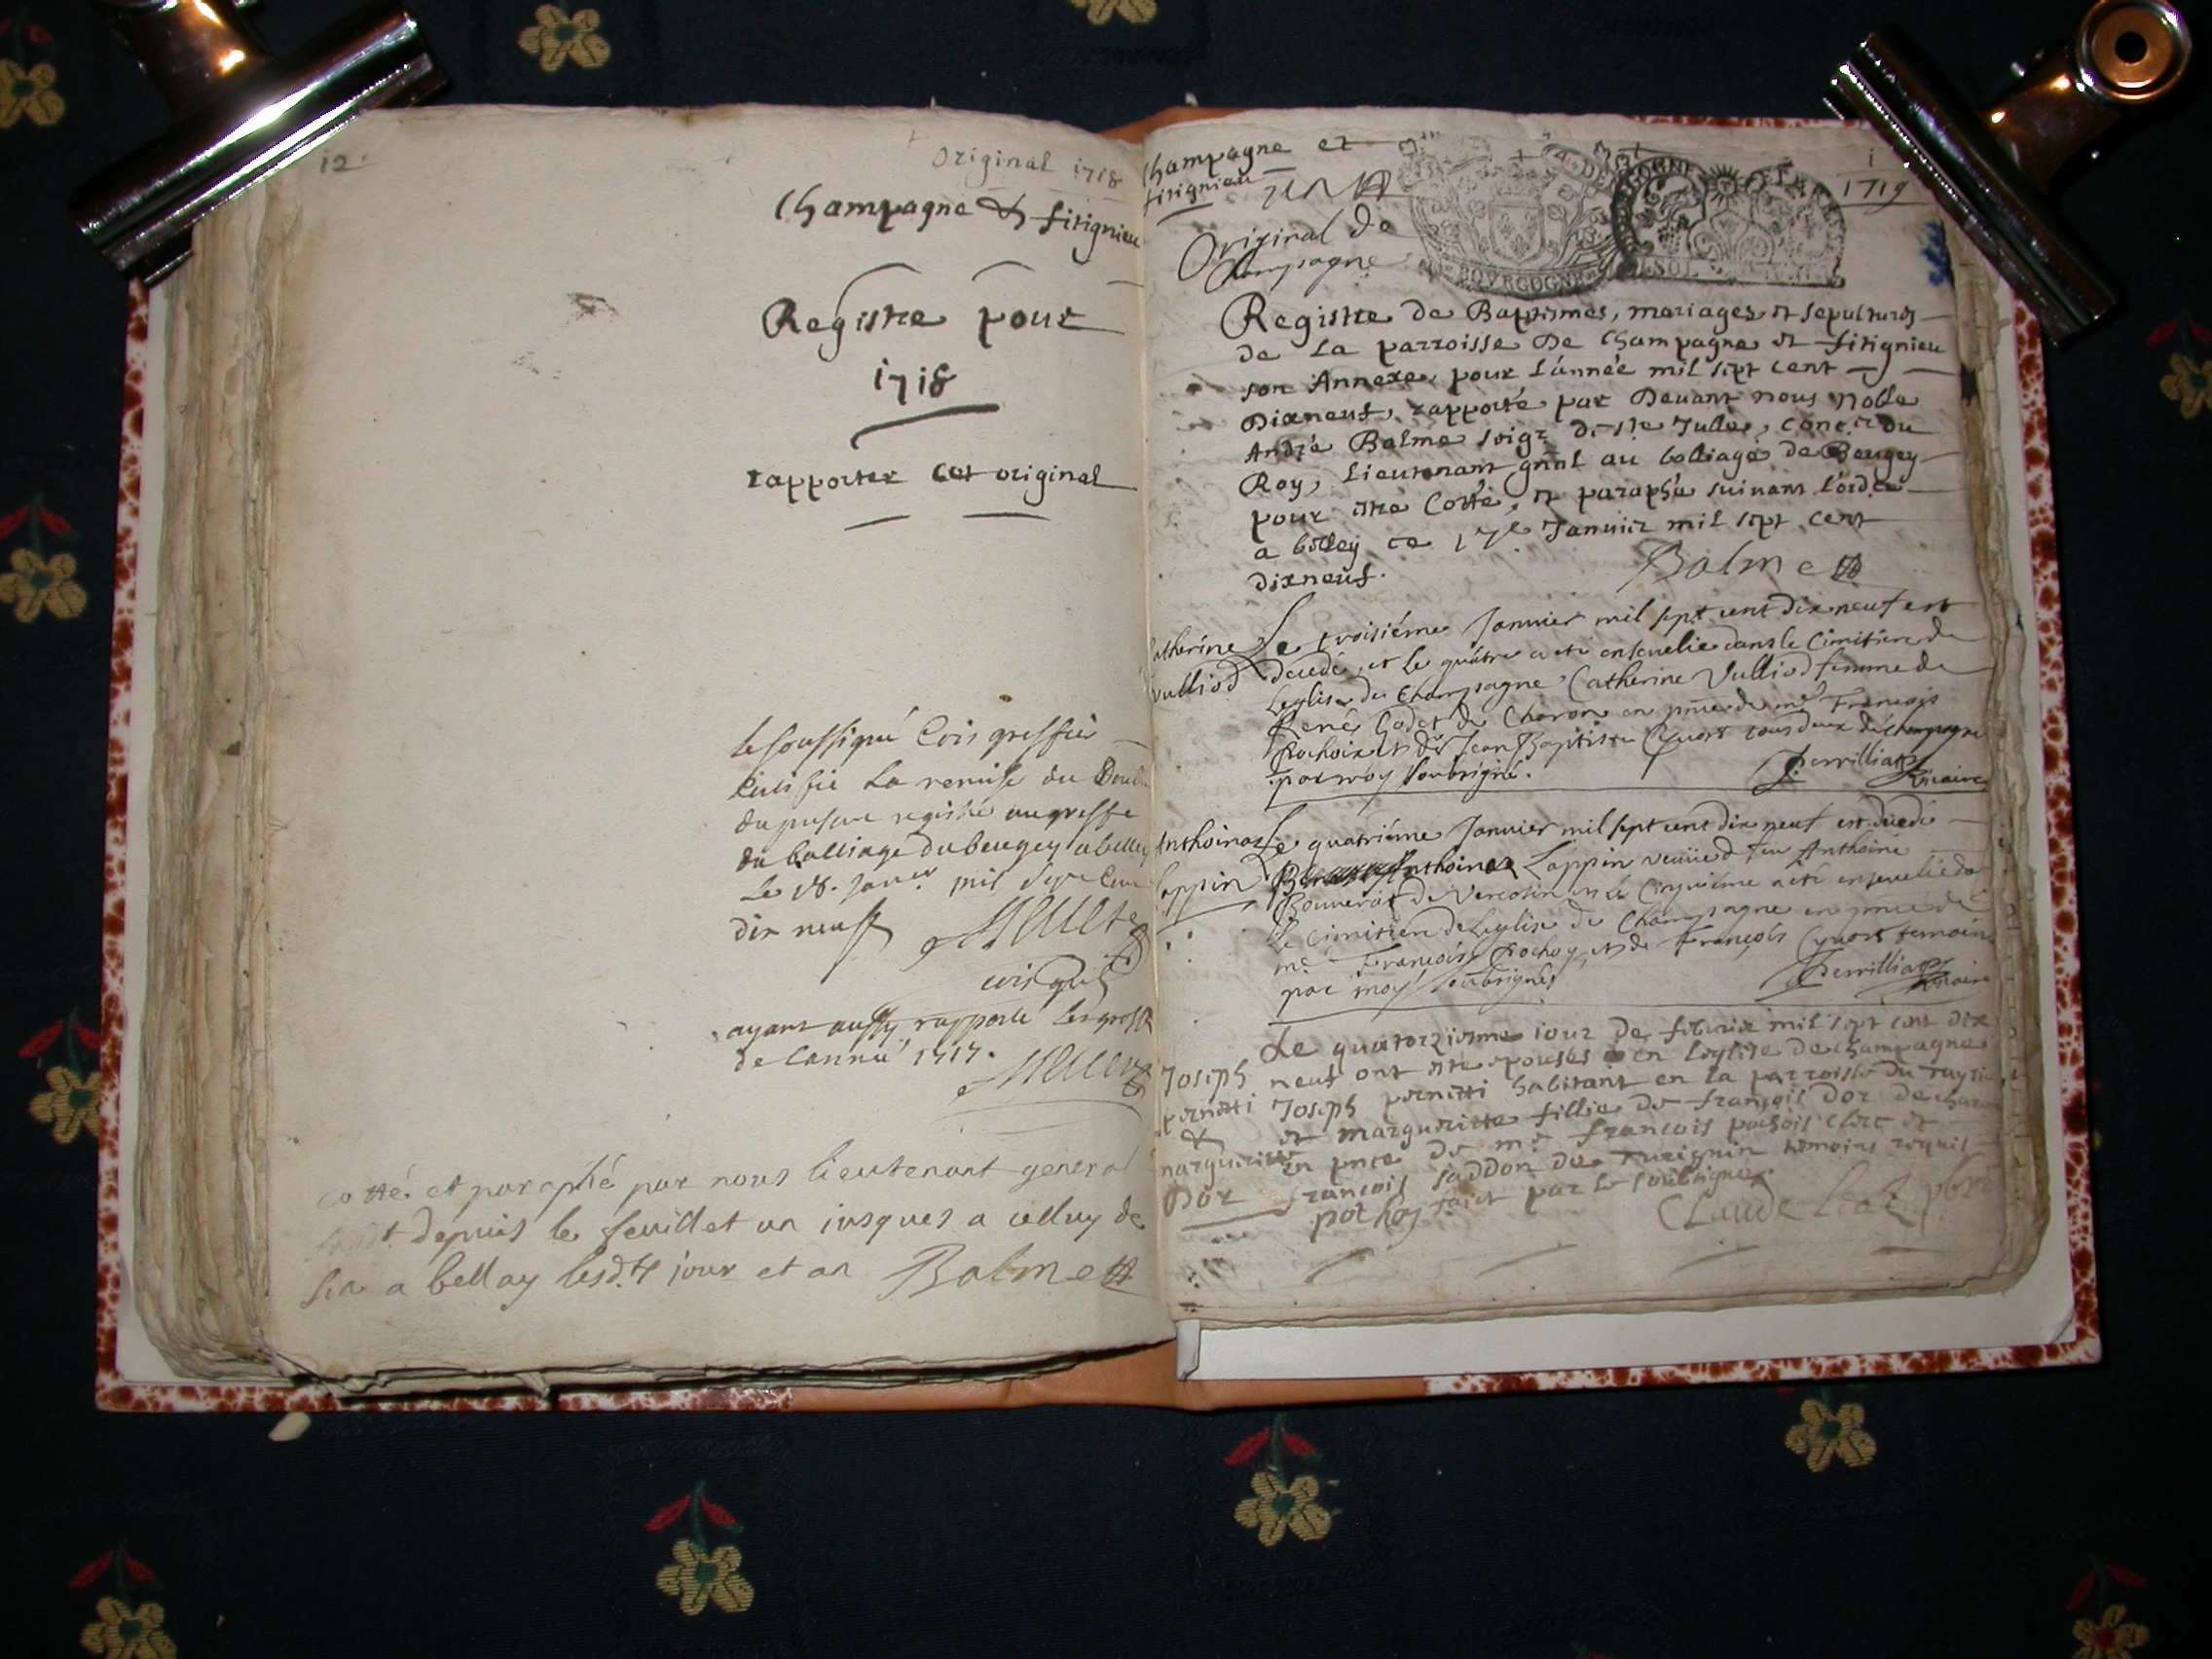 12
Original 1718
Champagne & fitignieu
Registre pour
1718
rapporter cet original
le soussigné greffier
la remise du Double
du presant registre au greffe
du balliage du beugey a belley
le 18. Janer mil sept cent
dix neuf
ayant aussy rapporté les grosses
de l'année 1717.
cotté et paraphé par nous lieutenant general
depuis le feuillet un jusques a celluy de
fin a belley lesd. jour et an Balme
Champagne et
fitignieu un
1
1719
BOURGOGNE
Original de
Champagne
Registre de Baptismes, mariages et sepultures
de La parroisse De Champagne et fitignieu
son Annexe, pour l'année mil sept cent
Dixneuf, rapporté par Devant nous Noble
André Balme seigr de ste Julle, conser du
Roy, Lieutenant gnal au balliage de Beugey
pour estre Cotté, et paraphé suivant l'ordre
a belley ce 17e Janvier mil sept cent
dixneuf.
Balme
Catherine
Vulliod
Le troisiéme Janvier mil sept cent dix neuf est
decedé, et le quátre a eté ensevelie dans le Cimitiere de
Leglise de Champagne Catherine Vulliod femme de
René Godet de Charon en pnce de me François
Pochoix et de Jean Baptiste Quors tous deux de champagne
par moy soubsigné.
Perrilliat
vicaire
Anthoinaz
Lappin
Le quatriéme Janvier mil sept cent dix neuf est decedé
Anthoinaz Lappin veuve d feu Anthoine
Bouverat de Vercosin et le Cinquiéme a eté ensevelie da
Le cimitiere de Leglise de Champagne en pnce de
me François Pochoy, et de François Quors temoins
par moy soubsigné
Perrilliat
vicaire
Joseph
pernetti
&
marguerite
Dor
Le quatorziesme iour de febvrier mil sept cent dix
neuf ont esté epousés en l'eglise de champagne
Joseph pernetti habitant en la parroisse du
et marguerite fillie de françois Dor de charon
en pnce de me françois pochois clerc et
françois saddon de Turignin temoins requis
pochoy faict par le soubsigné.
Claude pbre